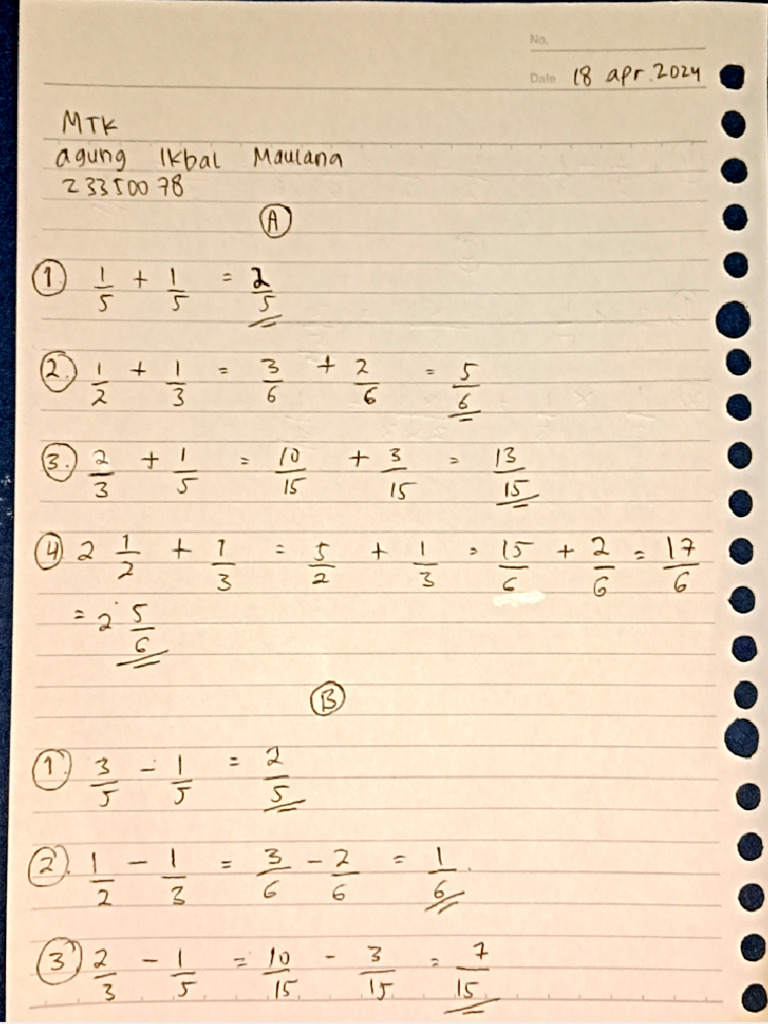 No.
Date 18 apr. 2024
MTK
agung Ikbal Maulana
23350078
A
1 1/5 + 1/5 = 2/5
2. 1/2 + 1/3 = 3/6 + 2/6 = 5/6
3. 2/3 + 1/5 = 10/15 + 3/15 = 13/15
4 2 1/2 + 1/3 = 5/2 + 1/3 = 15/6 + 2/6 = 17/6
= 2 5/6
B
1. 3/5 - 1/5 = 2/5
2. 1/2 - 1/3 = 3/6 - 2/6 = 1/6.
3. 2/3 - 1/5 = 10/15 - 3/15 = 7/15